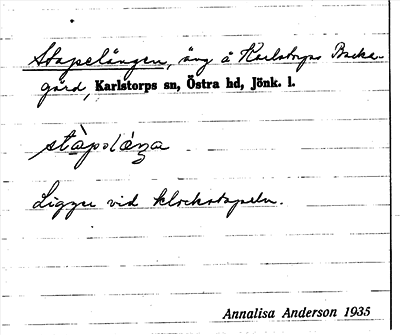 Stapelängen, äng å Karlstorps Backa-
gård, Karlstorps sn, Östra hd, Jönk. l.
Ligger vid klockstapeln.
Annalisa Anderson 1935